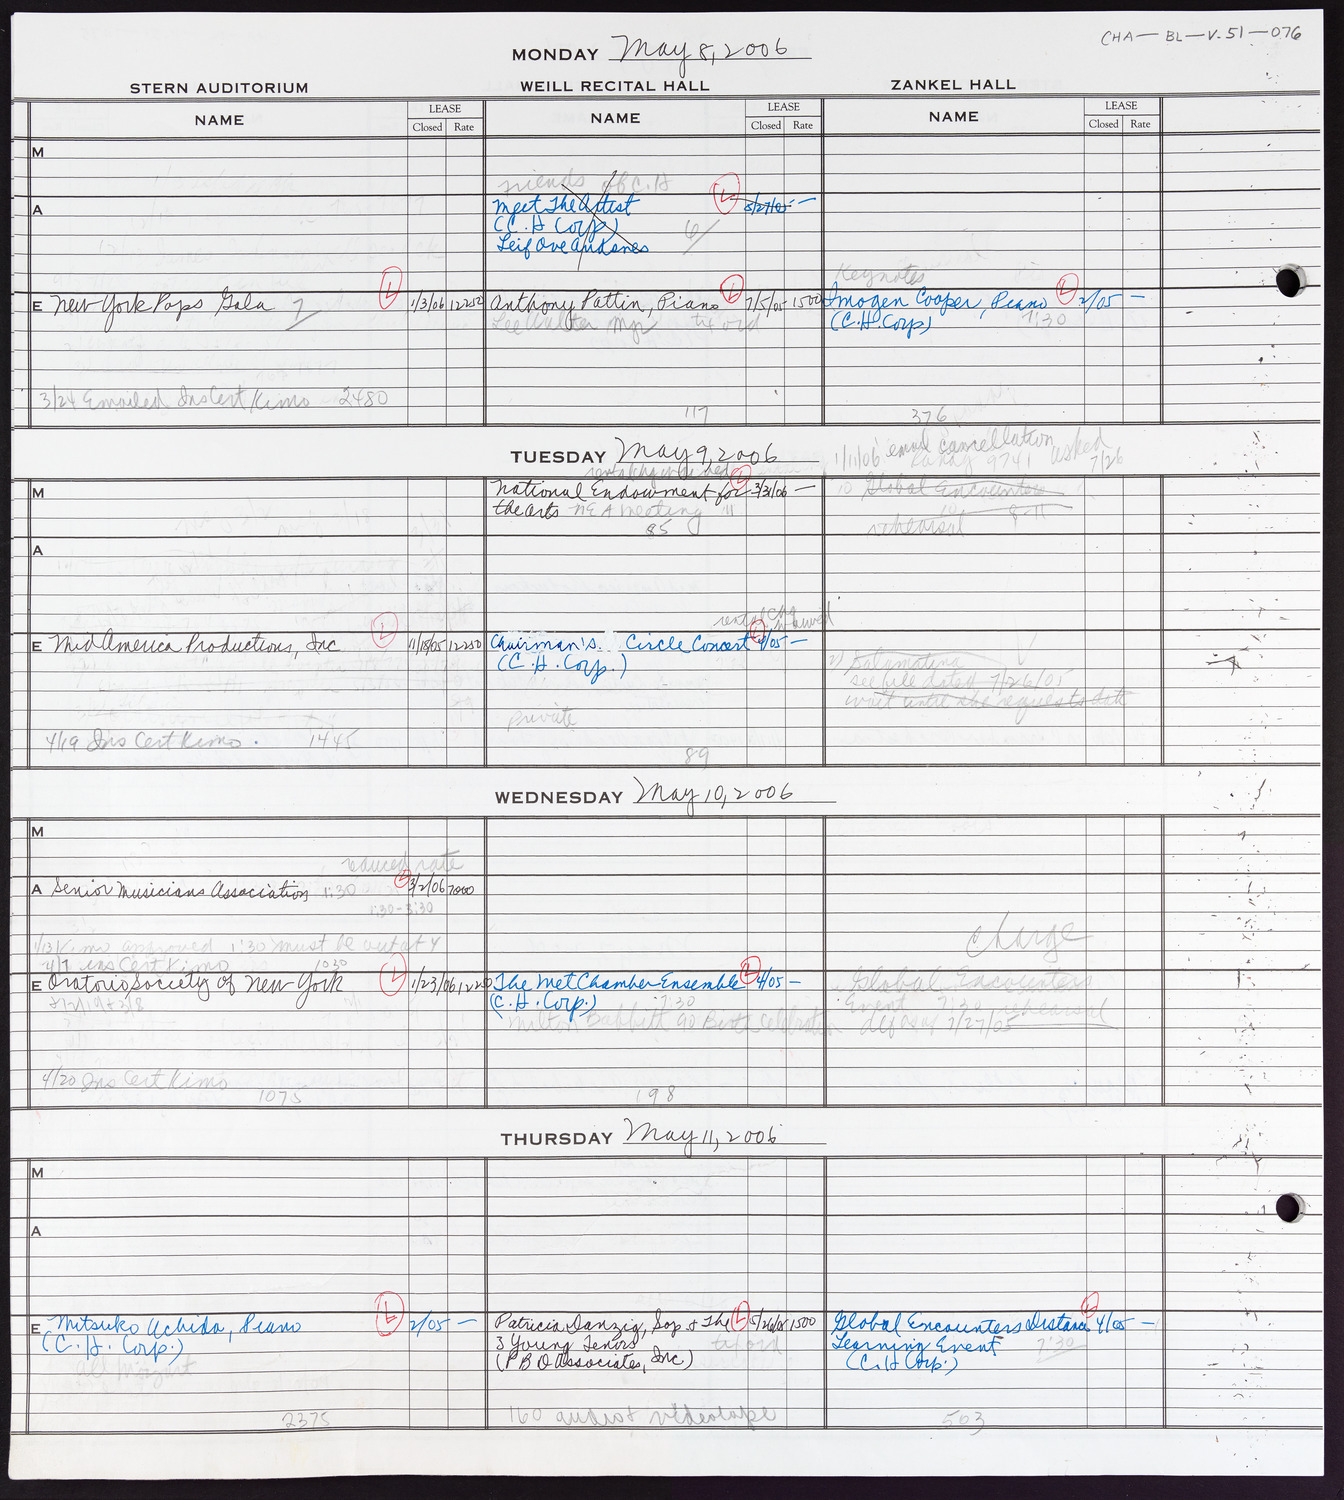 CHA—BL—V.51—076
MONDAY May 8, 2006
STERN AUDITORIUM WEILL RECITAL HALL ZANKEL HALL
NAME LEASE Closed Rate NAME LEASE Closed Rate NAME LEASE Closed Rate
M
Friends of C.H
A Meet The Artist L 5/27/05 —
(C.H Corp) 6
Leif Ove Andsnes
Keynotes
E New York Pops Gala 7 L 1/3/06 12250 Anthony Pattin, Piano L 7/5/05 1500 Imogen Cooper, Piano L 2/05 —
Lee Walter Mgr (C.H. Corp) 7:30
3/24 Emailed Ins Cert Kimo 2480
117 376
TUESDAY May 9, 2006
1/11/06 email cancellation
asked 7/26
M National Endowment for L 3/31/06 — 10 Global Encounters
the arts NEA meeting 11 10 8-11
85 rehearsal
A
rental chg waived
E MidAmerica Productions, Inc L 11/18/05 12250 Chairman's Circle Concert L 4/05 —
(C.H. Corp.) see file dated 7/26/05
wait until she requests date
private
4/19 Ins Cert Kimo. 1445
89
WEDNESDAY May 10, 2006
M
reduced rate
A Senior Musicians Association 1:30 L 3/2/06 7000
1:30-3:30
1/13 Kimo approved 1:30 must be out at 4 charge
4/7 ins Cert Kimo 1030
E Oratorio Society of New York L 1/23/06 12250 The Met Chamber Ensemble L 4/05 — Global Encounters
(C.H. Corp.) 7:30 Event 7:30 rehearsal
Milton Babbitt 90 Birth Celebration 7/27/05
4/20 Ins Cert Kimo
1075 198
THURSDAY May 11, 2006
M
A
E Mitsuko Uchida, Piano L 2/05 — Patricia Danzig, Sop. & The L 5/26/05 1500 Global Encounters Distance L 4/05 —
(C.H. Corp.) 3 Young Tenors Learning Event 7:30
all Mozart (PBO Associates, Inc) (C.H Corp.)
2375 160 audio & videotape 503